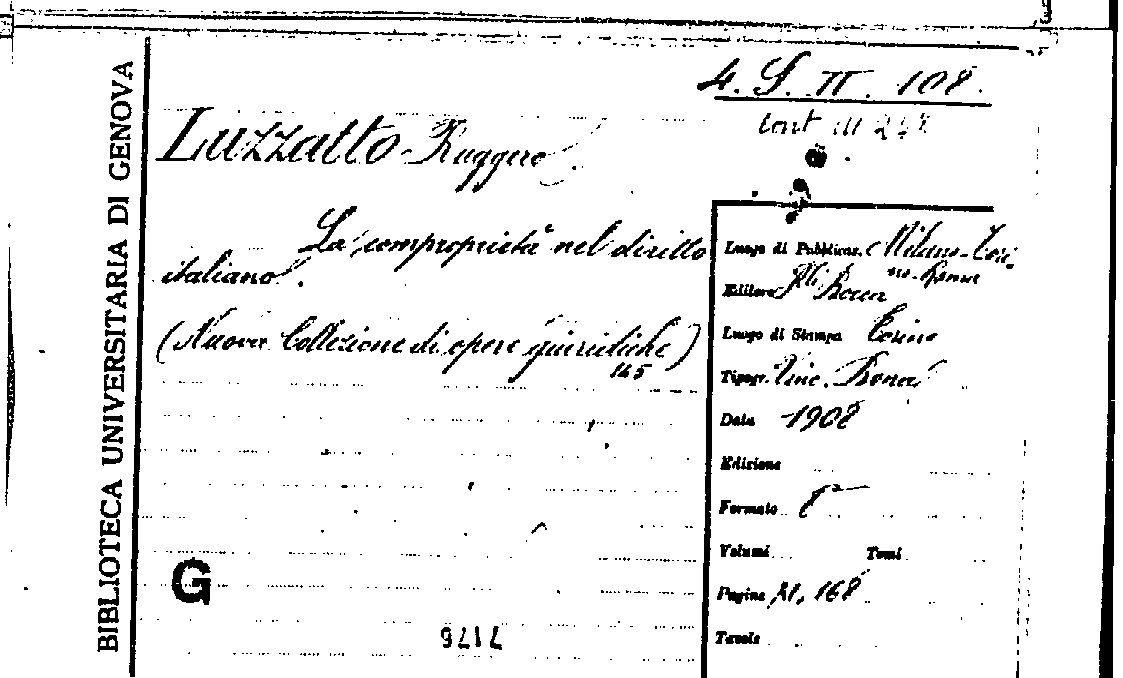 BIBLIOTECA UNIVERSITARIA DI GENOVA
4. S. II. 108.
Luzzatto Ruggero.
La comproprietà nel diritto
italiano.
(Nuova Collezione di opere giuridiche)
145
Luogo di Pubblicaz. Milano-Tori-
no-Roma
Editore F.lli Bocca
Luogo di Stampa Torino
Tipogr. Vinc. Bona
Data 1908
Edizione
Formato 8°
Volumi Tomi
Pagine XI, 168
Tavole
G
7176